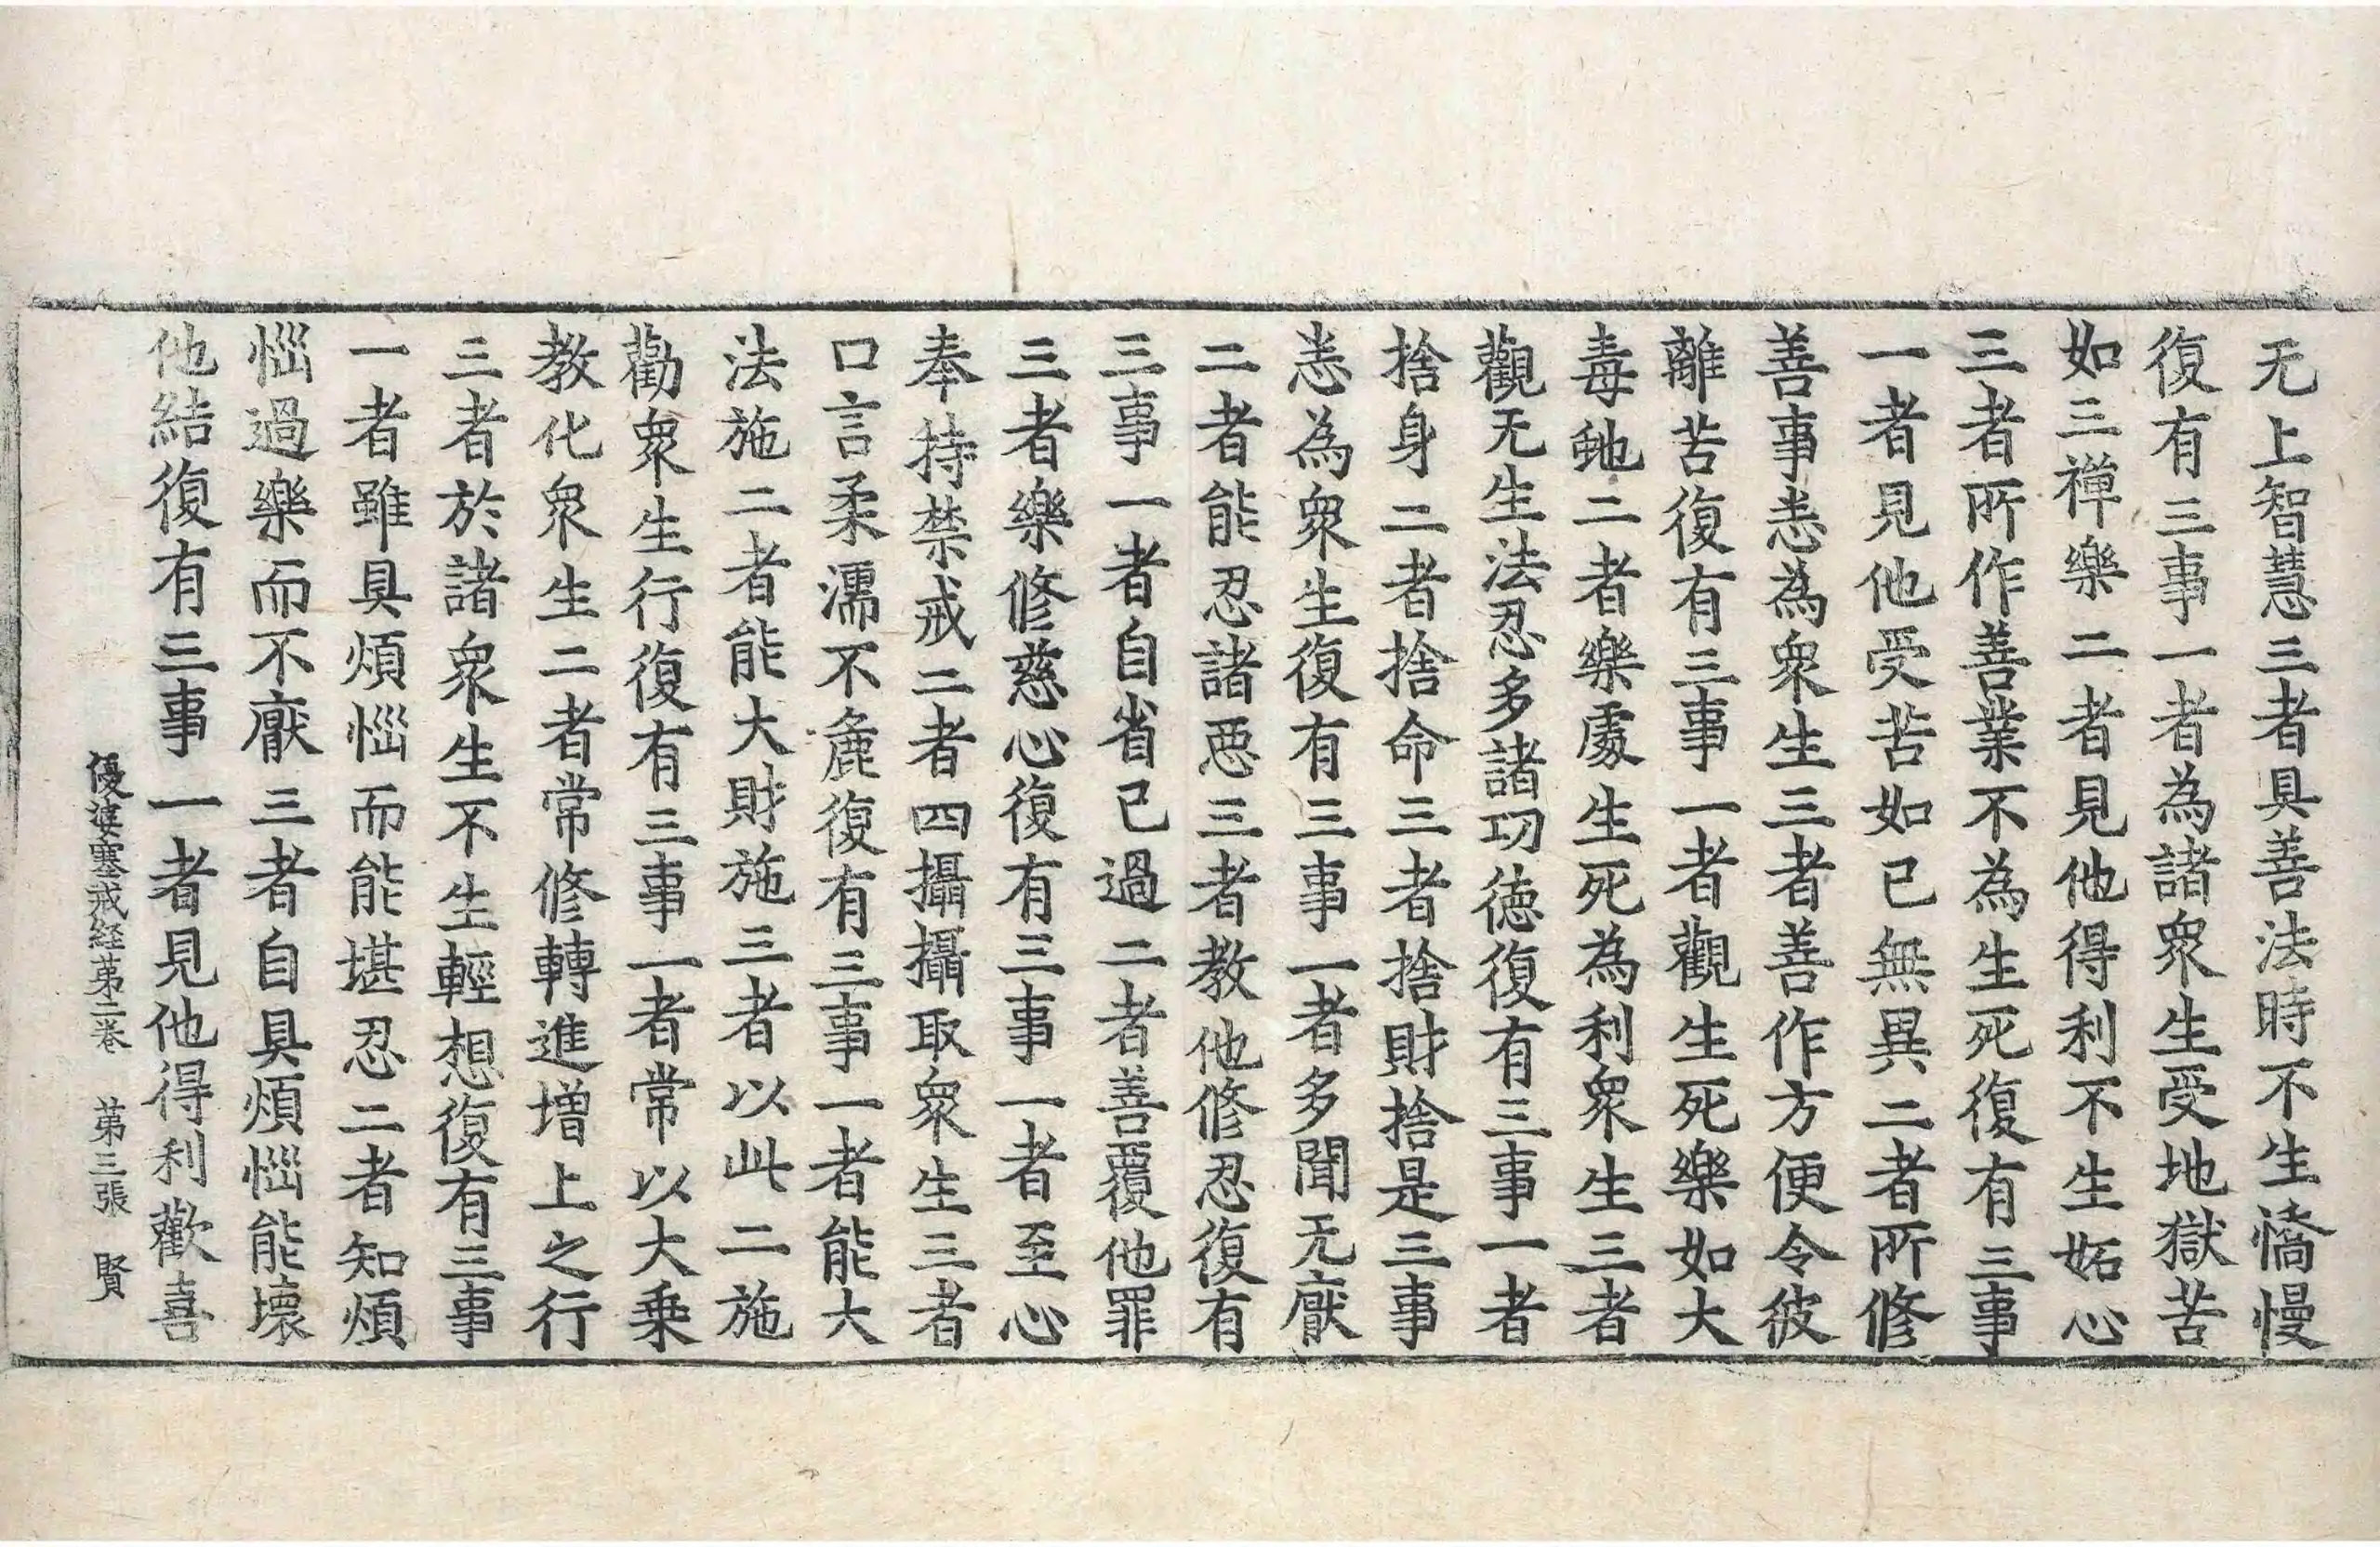 无上智慧三者具善法時不生憍慢
復有三事一者為諸衆生受地獄苦
如三禪樂二者見他得利不生妬心
三者所作善業不為生死復有三事
一者見他受苦如已無異二者所修
善事恚為衆生三者善作方便令彼
離苦復有三事一者觀生死樂如大
毒虵二者樂處生死為利衆生三者
觀无生法忍多諸功徳復有三事一者
捨身二者捨命三者捨財捨是三事
恚為衆生復有三事一者多聞无厭
二者能忍諸惡三者教他修忍復有
三事一者自省已過二者善覆他罪
三者樂修慈心復有三事一者至心
奉持禁戒二者四攝攝取衆生三者
口言柔濡不麁復有三事一者能大
法施二者能大財施三者以此二施
勸衆生行復有三事一者常以大乗
教化衆生二者常修轉進增上之行
三者於諸衆生不生輕想復有三事
一者雖具煩惱而能堪忍二者知煩
惱過樂而不厭三者自具煩惱能壞
他結復有三事一者見他得利歡喜
優婆塞戒経苐二卷 苐三張 賢